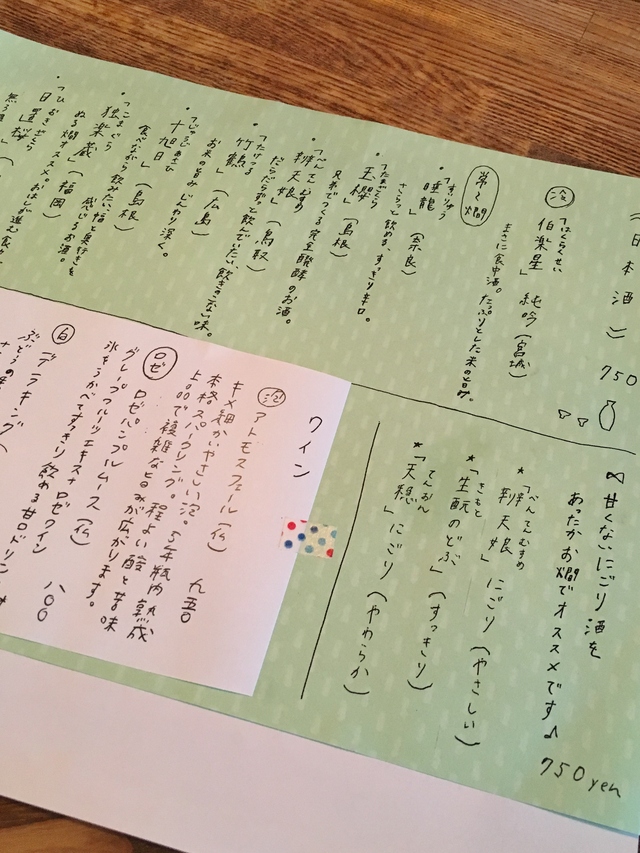 (日本酒) 750
冷
「はくらくせい
伯楽星」純吟(宮城)
まさに食中酒。たっぷりとした米の旨み。
常〜燗
・「すいりゅう
睡龍」(奈良)
さらっと飲める、すっきり辛口。
・「たまざくら
玉櫻」(島根)
兄弟でつくる完全醗酵のお酒。
・「べんてんむすめ
辨天娘」(鳥取)
だらだらずっと飲んでいたい、飲きのこない味。
・「たけつる
竹鶴」(広島)
お米の旨みじんわり深く。
・「じゅうじあさひ
十旭日」(島根)
食べながら飲みたい、旨と奥行きを
・「こまぐら
独楽蔵」(福岡)感じるお酒。
ぬる燗オススメ。おはしが進む食中
・「ひおきざくら
日置桜」(
⋈甘くないにごり酒を
あったかお燗でオススメです♪
750yen
★「べんてんむすめ
辨天娘」にごり(やさしい)
★「きもと
生酛のどぶ」(すっきり)
★「てんおん
天穏」にごり(やわらか)
ワイン
泡 アトモスフェール(仏) 九五〇
キメ細かいやさしい泡。5年瓶内熟成
本格スパークリング。程よい酸と苦味
上品で複雑な旨みが広がります。
ロゼ ロゼパンプルムース(仏) 八〇〇
グレープフルーツエキス+ロゼワイン
氷をうかべてすっきり飲める甘口ドリンク
白 デラキング(
ぶどうの